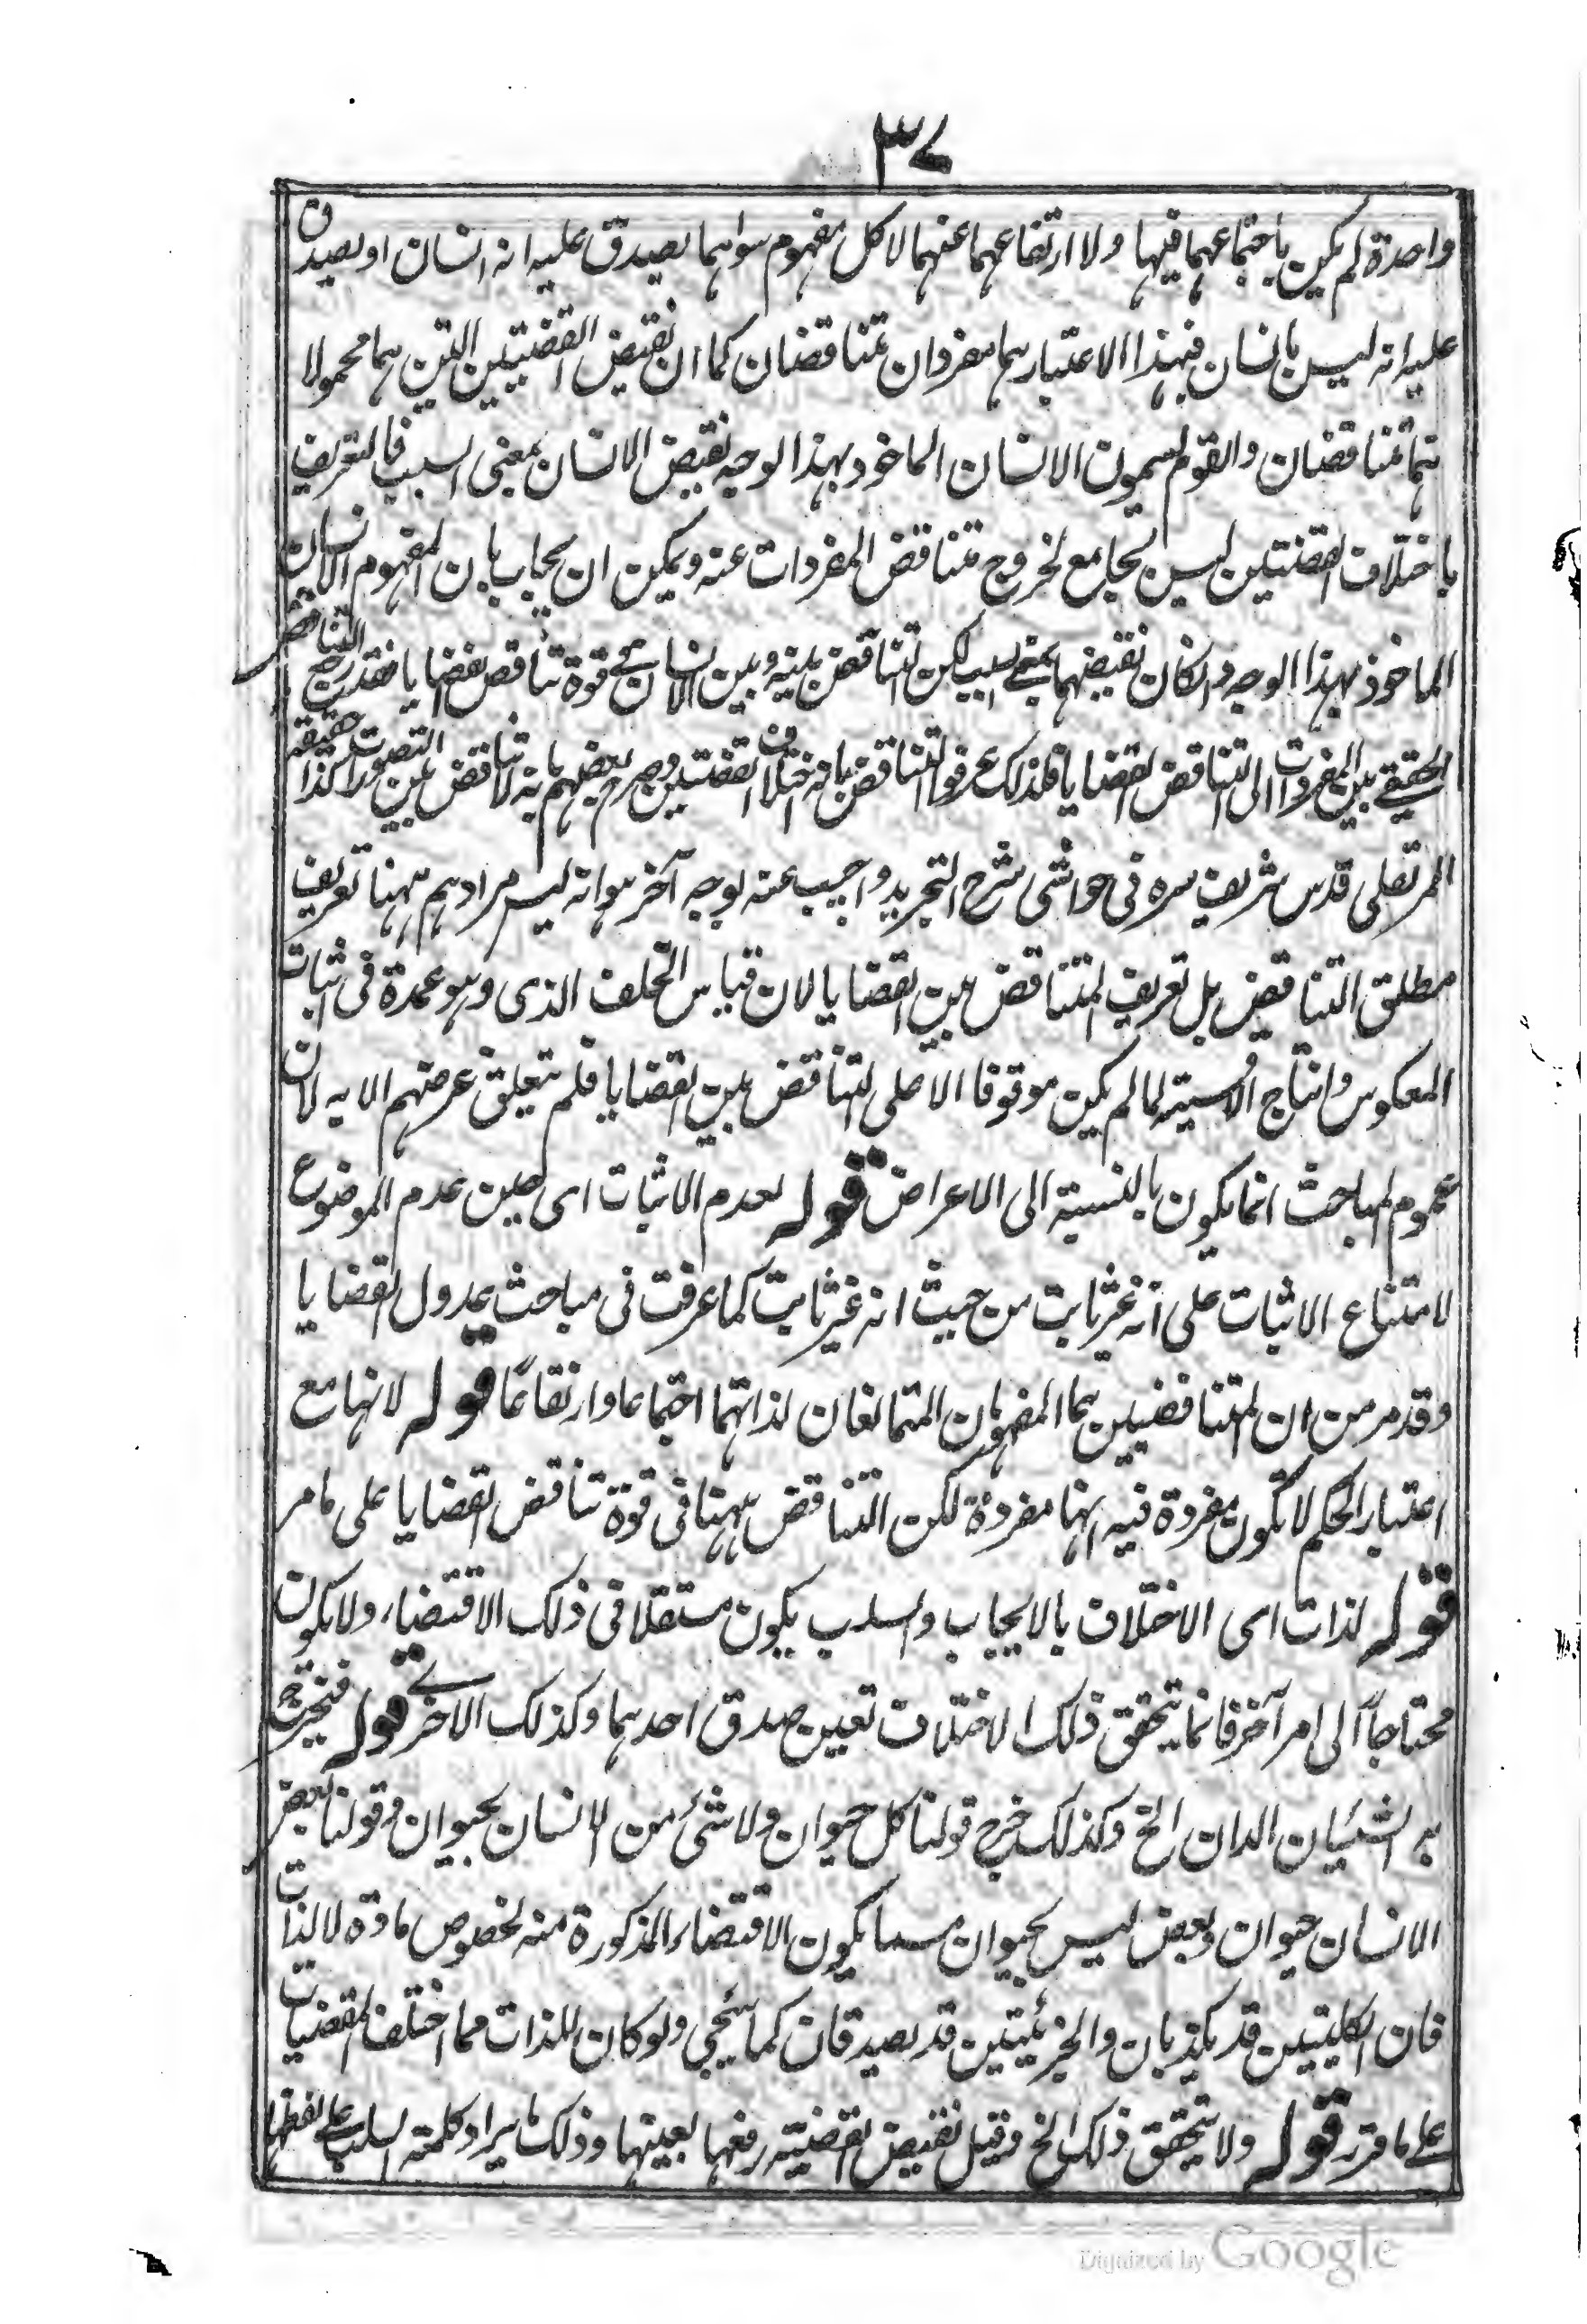 ٣٧
واحدة لم يكن باجتماعهما فيها ولا ارتفاعهما عنهما لا كل مفهوم سواهما يصدق عليه انه انسان او يصدق
عليه انه ليس بانسان فبهذا الاعتبار هما مفردان متناقضان كما ان نقيض القضيتين اللتين هما محمولا
تهما متناقضان والقوم يسمون الانسان الماخوذ بهذا الوجه نقيض الانسان بمعنى السلب فالتعريف
باختلاف القضيتين ليس بجامع لخروج متناقض المفردات عنه ويمكن ان يجاب بان المفهوم الانسان
الماخوذ بهذا الوجه وان كان نقيضهما بمعنى السلب لكن التناقض بينه وبين الانسان في قوة تناقض القضايا فقد رجع التناقض
الحقيقي بين المفردات الى التناقض القضايا فلذلك عرفوا التناقض بانه اختلاف القضيتين وصرح بعضهم بانه لا تناقض بين التصورات كذا حققه
المرتضى قدس شريف سره في حواشى شرح التجريد واجيب عنه بوجه آخر هو انه ليس مرادهم ههنا تعريف
مطلق التناقض بل تعريف المتناقض بين القضايا لان قياس الخلف الذى هو عمدة في اثبات
المعكوس وانتاج الاقيسة لما لم يكن موقوفا الا على التناقض بين القضايا فلم يتعلق غرضهم الا به لان
عموم المباحث انما يكون بالنسبة الى الاعراض قوله لعدم الاثبات اى حين عدم الموضوع
لامتناع الاثبات على انه غير ثابت من حيث انه غير ثابت كما عرفت في مباحث عدول القضايا
وقد مر من ان المتناقضين هما المفهومان المتمانعان لذاتهما اجتماعا وارتفاعا قوله لانها مع
اعتبار الحكم لا تكون مفردة فيه انها مفردة لكن التناقض ههنا في قوة تناقض القضايا على ما مر
قوله لذات اى الاختلاف بالايجاب والسلب يكون مستقلا في ذلك الاقتضاء ولا يكون
محتاجا الى امر آخر فانما يتحقق ذلك الاختلاف تعين صدق احدهما وكذلك الاخر قوله فيخرج
الشيئان الذان الخ وكذلك خرج قولنا كل حيوان ولا شئ من الانسان بحيوان وقولنا بعض
الانسان حيوان وبعض ليس بحيوان يكون الاقتضاء المذكورة منه لخصوص مادة لا لذات
فان الكليتين قد يكذبان والجزئيتين قد يصدقان كما سيجي ولو كان للذات مما اختلف المقتضيات
على ما قرر قوله ولا يتحقق ذلك الخ وقيل نقيض القضيتة رفعها بعينها وذلك بايراد كلمة السلب على لفظها